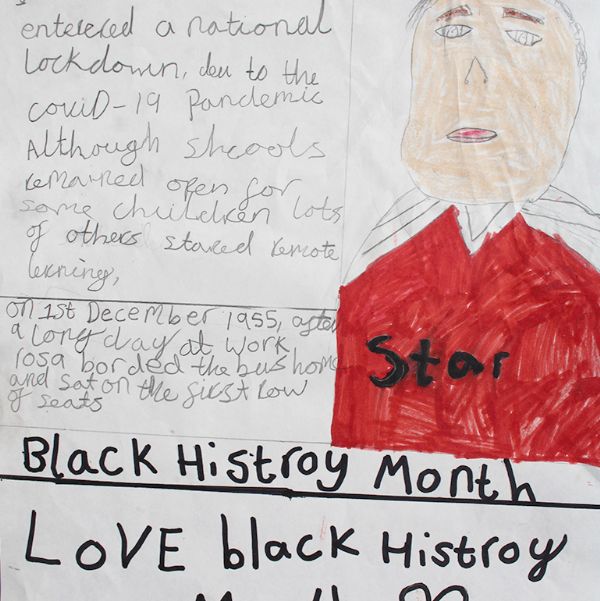 entered a national
lockdown, deu to the
covid-19 Pandemic
Although shcools
remained open for
some children lots
of others stared remote
lerning,
on 1st December 1955, after
a long day at work
rosa borded the bus home
and sat on the first row
of seats
Star
Black Histroy Month
LOVE black Histroy